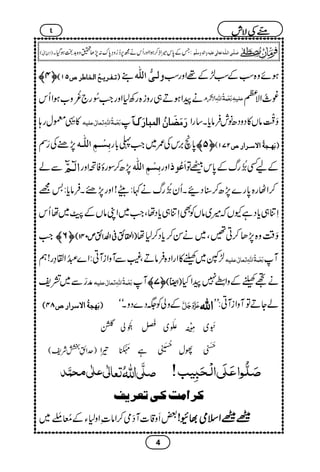 ٤ مُنّے کی لاش
فرمانِ مصطفٰے صلی اللہ تعالٰی علیہ واٰلہٖ وسلم: جس کے پاس میرا ذکر ہوا اور اُس نے مجھ پر دُرُودِ پاک نہ پڑھا تحقیق وہ بد بخت ہو گیا۔
ہوئے وہ سب کے سب بڑے ہو کر تھے اور سب ولیُّ اللہ بنے (تفریح الخاطر ص ۱۵) ﴿۴﴾
غوثُ الاعظم علیہ رحمۃ اللہ الاکرم جس دن پیدا ہوتے ہی روزہ رکھ لیا اور جب سورج غُرُوب ہوا اُس
وَقْت ماں کا دودھ نوش فرمایا۔ سارا رَمَضانُ المبارَک آپ رحمۃ اللہ تعالٰی علیہ کا یہی معمول رہا
(بَهجةُ الاسرار ص ۱۷۲) ﴿۵﴾ پانچ برس کی عمر میں جب پہلی بار بِسْمِ اللہ پڑھنے کی رَسْم
کے لیے کسی بُزُرگ کے پاس بیٹھے تو اَعُوذ اور بِسْمِ اللہ پڑھ کر سورۂ فاتحہ اور الٓمّٓ سے لے
کر اٹھارہ پارے پڑھ کر سنا دیے۔ اُن بُزُرگ نے کہا: بیٹے! اور پڑھئے۔ فرمایا: بس مجھے
اِتنا ہی یاد ہے کیوں کہ میری ماں کو بھی اِتنا ہی یاد تھا، جب میں اپنی ماں کے پیٹ میں تھا اُس
وَقْت وہ پڑھا کرتی تھیں، میں نے سُن کر یاد کر لیا تھا (الحقائق فی الحدائق ص ۱۴۰) ﴿۶﴾ جب
آپ رحمۃ اللہ تعالٰی علیہ لڑکپن میں کھیلنے کا ارادہ فرماتے، غیب سے آواز آتی: اے عبدُ القادِر! ہم
نے تجھے کھیلنے کے واسطے نہیں پیدا کیا (ایضاً) ﴿۷﴾ آپ رحمۃ اللہ تعالٰی علیہ مدرَسے میں تشریف
لے جاتے تو آواز آتی: ’’اللہ عَزَّوَجَلَّ کے ولی کو جگہ دے دو۔‘‘ (بَهجةُ الاسرار ص ۴۸)
نبوی مینھ علوی فصل بتولی گلشن
حسنی پھول حسینی ہے مہکنا تیرا (حدائقِ بخشش شریف)
صَلُّوا عَلَى الْحَبِيب! صلَّى اللهُ تعالٰى علٰى محمَّد
کرامت کی تعریف
میٹھے میٹھے اسلامی بھائیو! بعض اَوقات آدَمی کراماتِ اولیاء کے مُعامَلے میں
4